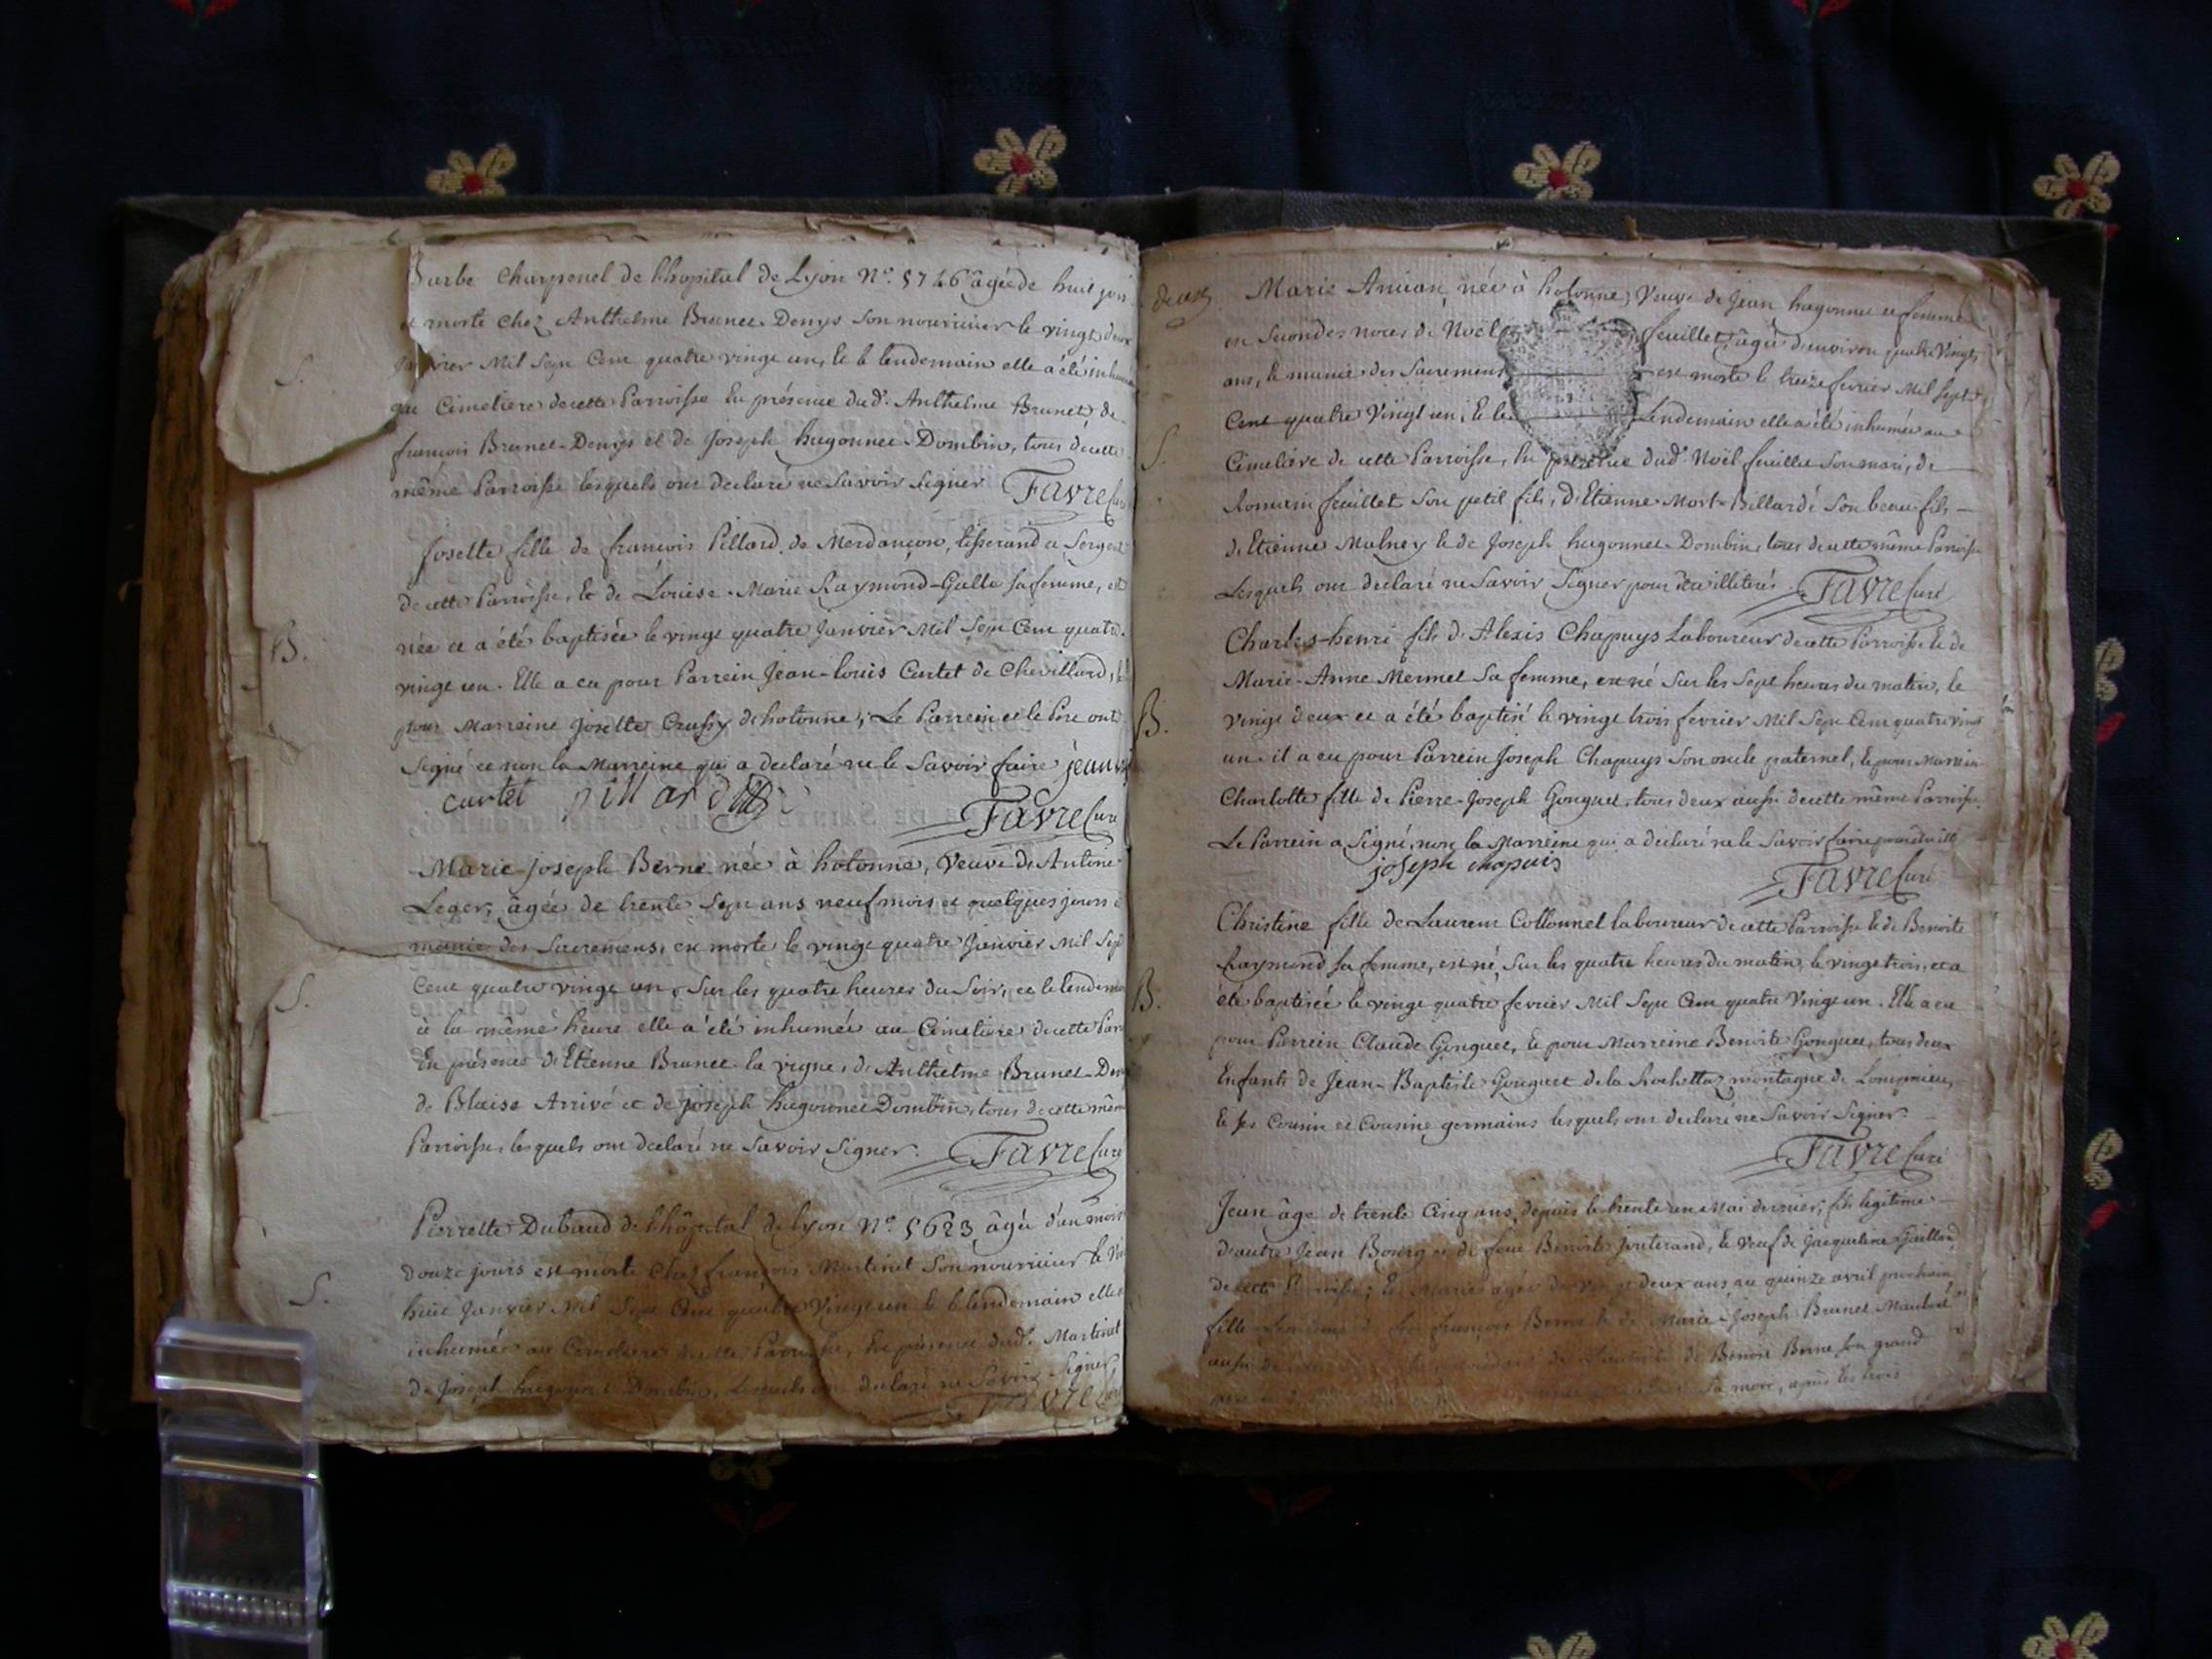 Barbe Charpenel de l'hopital de Lyon N.° 5746 âgée de huit jours
et morte chez Anthelme Brunet-Denys son nourricier le vingt deux
Janvier Mil Sept Cent quatre vingt un, et le lendemain elle a été inhumée
au Cimetiere de cette Parroisse En présence dud.t Anthelme Brunet, de
françois Brunet-Denys et de Joseph hugonnet-Dombin, tous de cette
même Parroisse lesquels ont declaré ne Savoir Signer Favre Curé
S.
Josette fille de françois Pillard de Merdançon, tisserand et Sergent
de cette Parroisse, et de Louise-Marie Raymond-Galle sa femme, est
née et a été baptisée le vingt quatre Janvier Mil Sept Cent quatre
B.
vingt un. Elle a eu pour Parrein Jean-Louis Curtet de Chevillard, et
pour Marreine Josette Crussy de hotonne; Le Parrein et le Pere ont
Signé et non la Marreine qui a declaré ne le Savoir faire jean
curtet pillard
Favre Curé
Marie-Joseph Berne née à hotonne, Veuve de Antone
Leger, âgée de trente Sept ans neuf mois et quelques jours
munie des Sacremens, est morte le vingt quatre Janvier Mil Sept
Cent quatre vingt un, Sur les quatre heures du Soir, et le lendemain
S.
à la même heure elle a été inhumée au Cimetiere de cette Par
En présence d'Etienne Brunet-la vigne, d'Anthelme Brunet-Denys
de Blaise Arrivé et de Joseph hugonnet Dombin, tous de cette même
Parroisse, lesquels ont declaré ne Savoir Signer. Favre Curé
Pierrette Dubaud de l'hôpital de Lyon N.° 5623 âgée d'un mois
douze jours est morte chez françois Martinet Son nourricier le vingt
S.
huit Janvier Mil Sept Cent quatre Vingt un et le lendemain elle
inhumée au Cimetiere de cette Parroisse, En présence dud.t Martinet
de Joseph hugonnet Dombin, Lesquels ont declaré ne Savoir Signer
Favre Curé
deux
Marie née à hotonne, Veuve de Jean hugonnet et femme
en Secondes noces de Noël feuillet, âgée d'environ quatre Vingts
ans, et munie des Sacremens est morte le treize fevrier Mil Sept
Cent quatre Vingt un, et le lendemain elle a été inhumée au
S.
Cimetière de cette Parroisse, En présence dud.t Noël feuillet Son mari, de
Romain feuillet Son petit fils, d'Etienne Mort-Billard Son beau-fils
d'Etienne Mulney et de Joseph hugonnet-Dombin, tous de cette même Parroisse
Lesquels ont declaré ne Savoir Signer pour être illiterés Favre Curé
Charles-henri fils d'Alexis Chapuys Laboureur de cette Parroisse et de
Marie-Anne Mermet Sa femme, est né Sur les Sept heures du matin, le
B.
vingt deux et a été baptisé le vingt trois fevrier Mil Sept Cent quatre vingt
un. il a eu pour Parrein Joseph Chapuys Son oncle paternel, et pour Marreine
Charlotte fille de Pierre-Joseph Gonguet, tous deux aussi de cette même Parroisse.
Le Parrein a Signé, non la Marreine qui a declaré ne le Savoir faire
joseph chapuis
Favre Curé
Christine fille de Laurent Collonnet laboureur de cette Parroisse et de Benoite
Raymond sa femme, est né Sur les quatre heures du matin, le vingt trois, et a
B.
été baptisée le vingt quatre fevrier Mil Sept Cent quatre Vingt un. Elle a eu
pour Parrein Claude Gonguet, et pour Marreine Benoite Gonguet, tous deux
Enfants de Jean-Baptiste Gonguet de la Rochettaz montagne de Lompnieu,
et ses Cousin et Cousine germains lesquels ont declaré ne Savoir Signer.
Favre Curé
Jean âgé de trente Cinq ans, depuis le trente un Mai dernier, fils legitime
d'autre Jean Bourg et de feue Benoite Jonterand, et Veuf de Jacqueline Guillod
de cette Parroisse; Et Marie âgée de vingt deux ans, au quinze avril prochain
fille de feu françois Berne et de Marie-Joseph Brunet
aussi de de Benoit Berne Son grand
Sa mere, après les trois